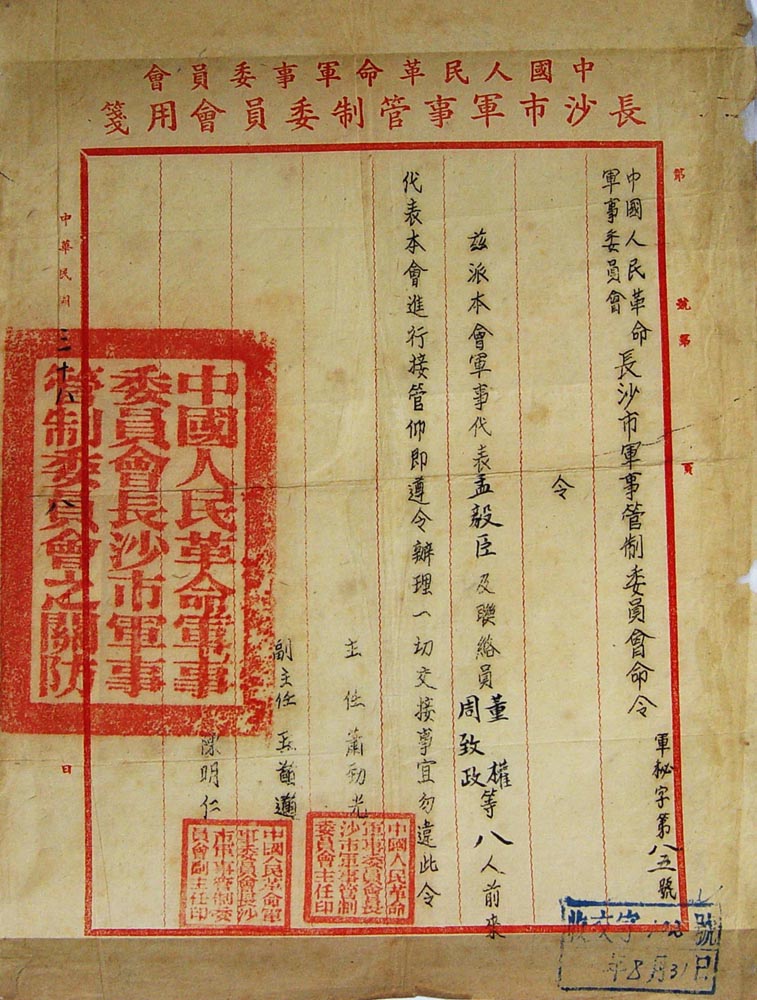 中國人民革命軍事委員會
長沙市軍事管制委員會用箋
第 號第 頁
中國人民革命軍事委員會長沙市軍事管制委員會命令
軍秘字第八五號
令
茲派本會軍事代表孟毅臣及聯絡員董權周致政等八人前來
代表本會進行接管仰即遵令辦理一切交接事宜勿違此令
主任 蕭勁光
副主任 王首道
陳明仁
中華民國三十八 八 日
中國人民革命軍事
委員會長沙市軍事
管制委員會之關防
中國人民革命
軍事委員會長
沙市軍事管制
委員會主任印
中國人民革命軍
事委員會長沙
市軍事管制委
員會副主任印
收文字 號
年8月31日